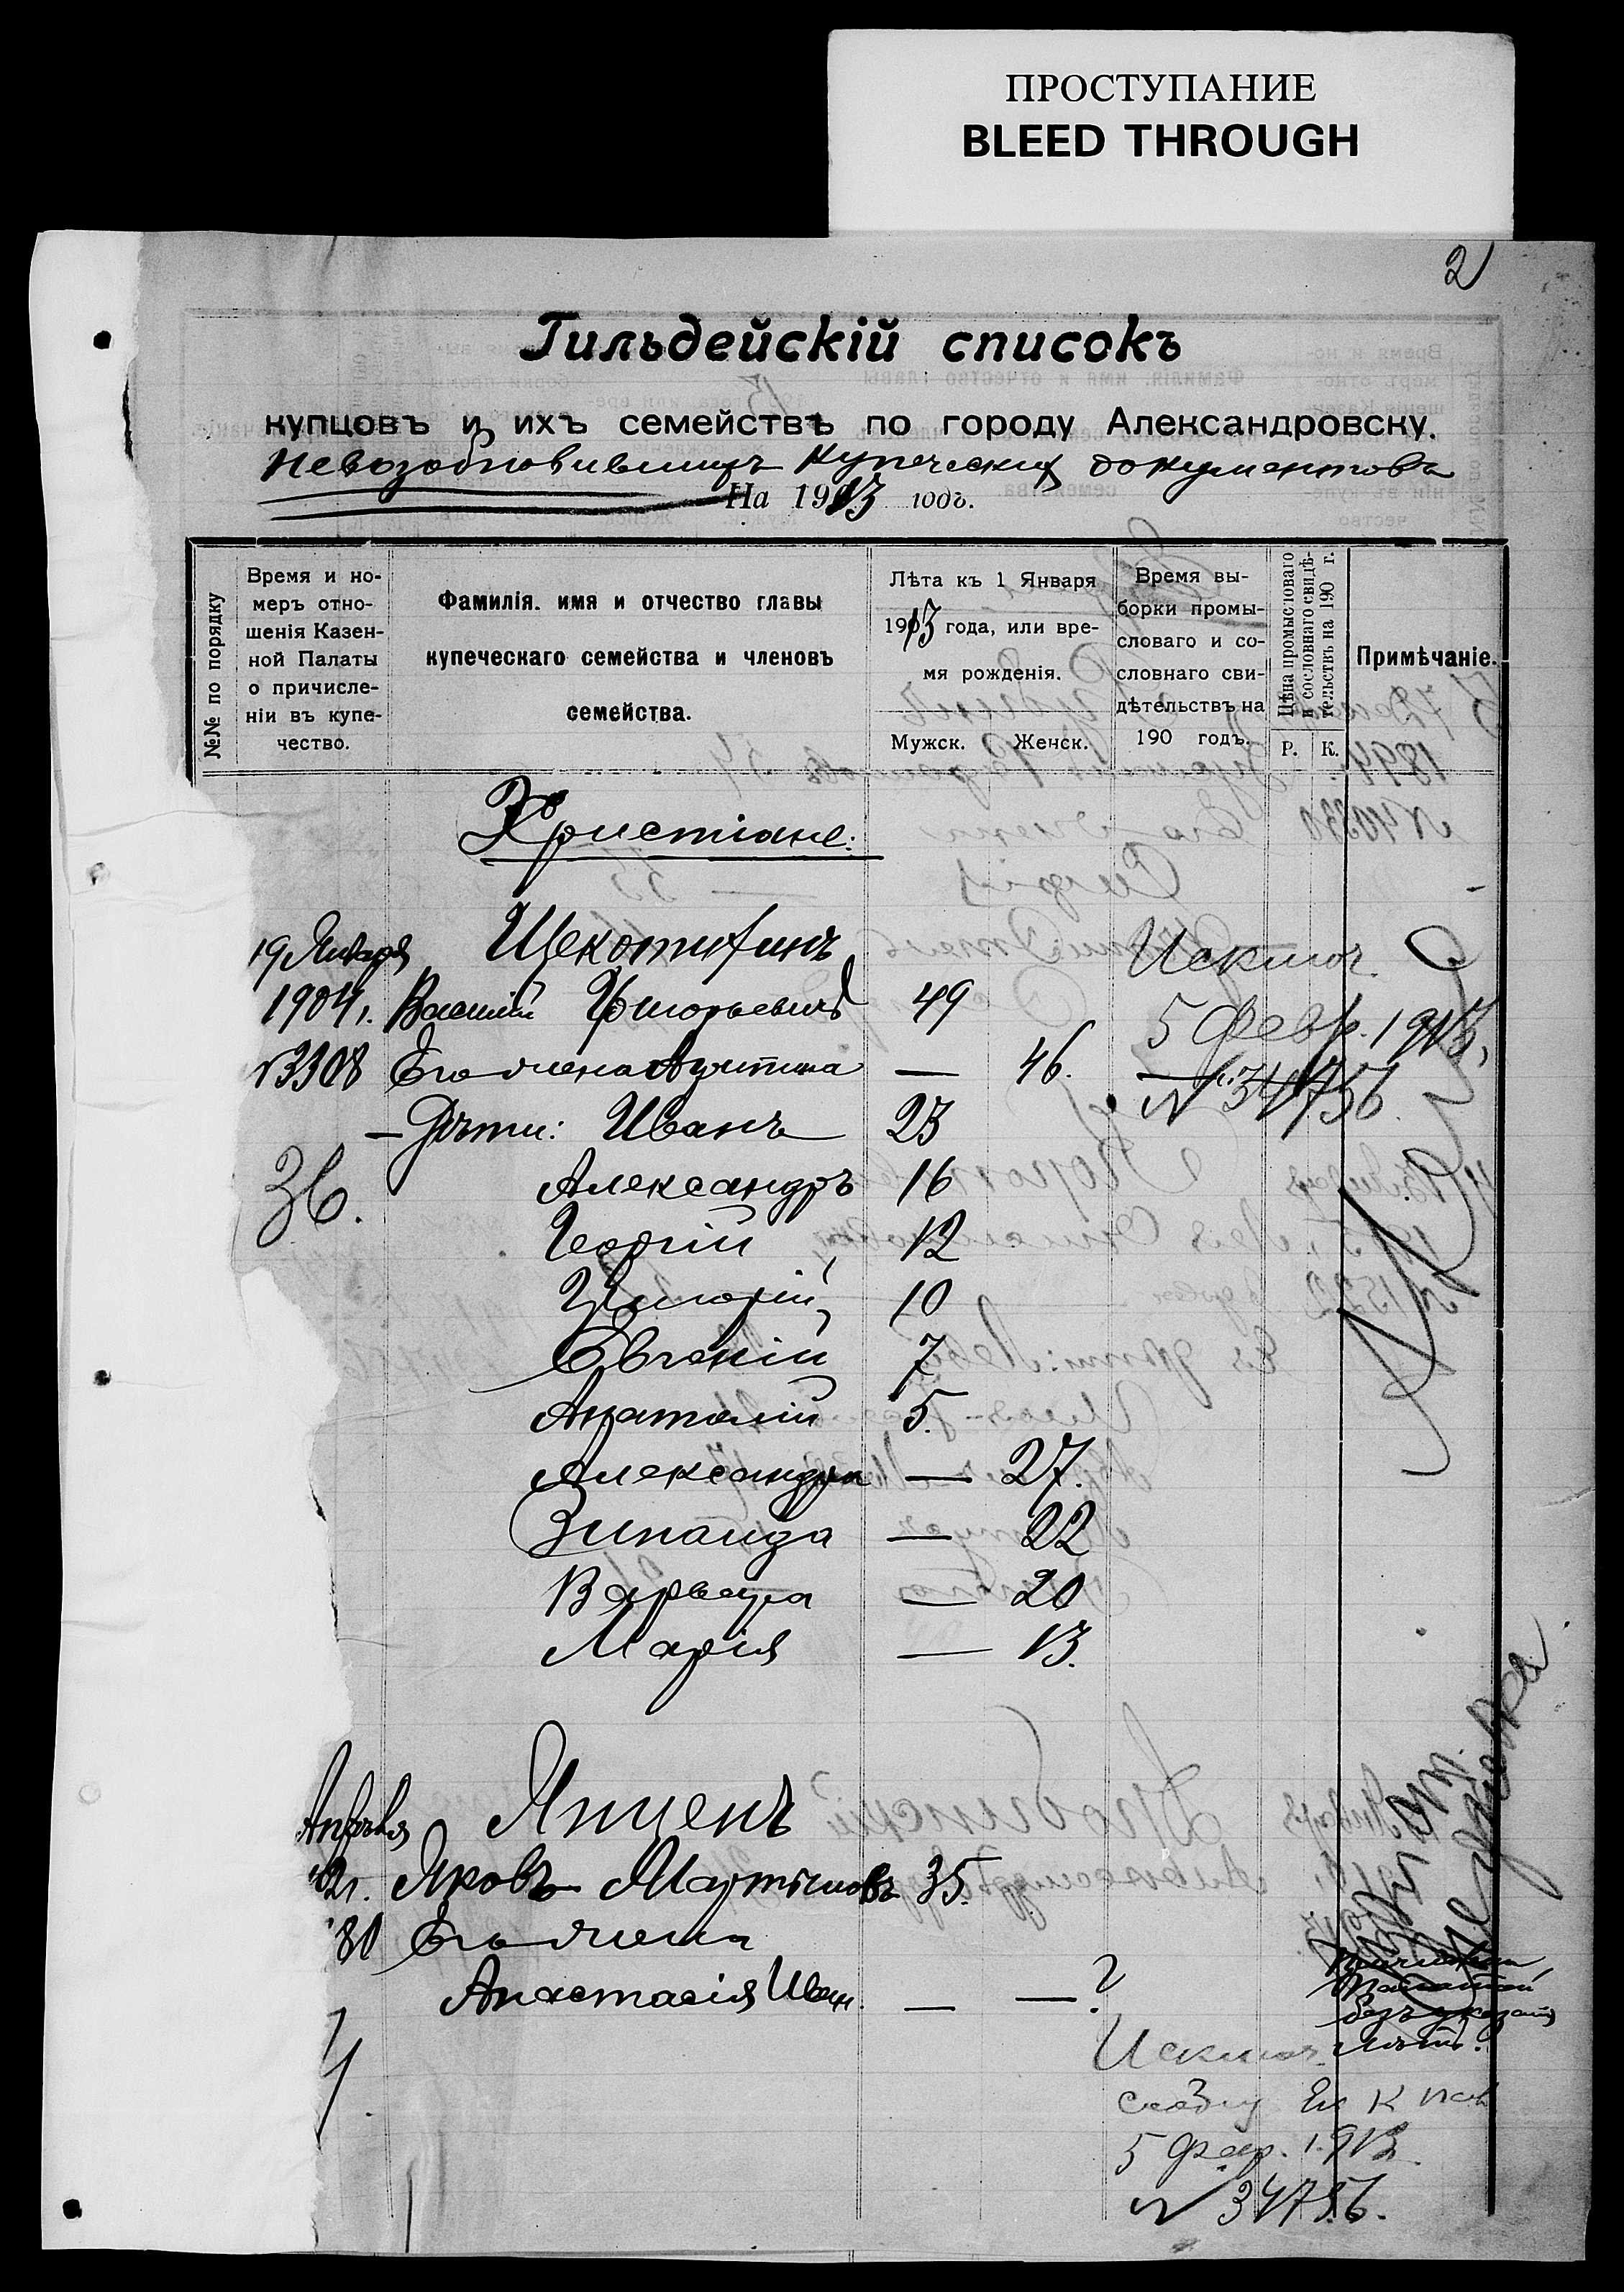 ПРОСТУПАНИЕ
BLEED THROUGH
2
Гильдейскій списокъ
купцовъ и ихъ семействъ по городу Александровску.
Невозобновившихъ купеческихъ документовъ
На 1913 годъ.
№№ по порядку
Время и но-
меръ отно-
шенія Казен-
ной Палаты
о причисле-
ніи въ купе-
чество.
Фамилія. имя и отчество главы
купеческаго семейства и членовъ
семейства.
Лѣта къ 1 Января
1913 года, или вре-
мя рожденія.
Мужск. Женск.
Время вы-
борки промы-
словаго и со-
словнаго сви-
дѣтельствъ на
190 годъ.
Цѣна промысловаго
и сословнаго свидѣ-
тельствъ на 190 г.
Р. К.
Примѣчаніе.
Христіане:
19 Января Щекотихинъ Исключ.
1904 г. Василій Григорьевичъ 49 5 февр. 1913,
№ 3308 Его жена Августина — 46. № 34756.
— Дѣти: Иванъ 23
36. Александръ 16
Георгій 12
Григорій 10
Евгеній 7
Анатолій 5.
Александра — 27.
Зинаида — 22
Варвара — 20
Марія — 13.
Апрѣля Яппенъ
Яковъ Мартиновъ 35.
Его жена
Анастасія Иван. — — ?
безъ указанія
лѣтъ.
Исключ.
5 февр. 1913
№ 34756.